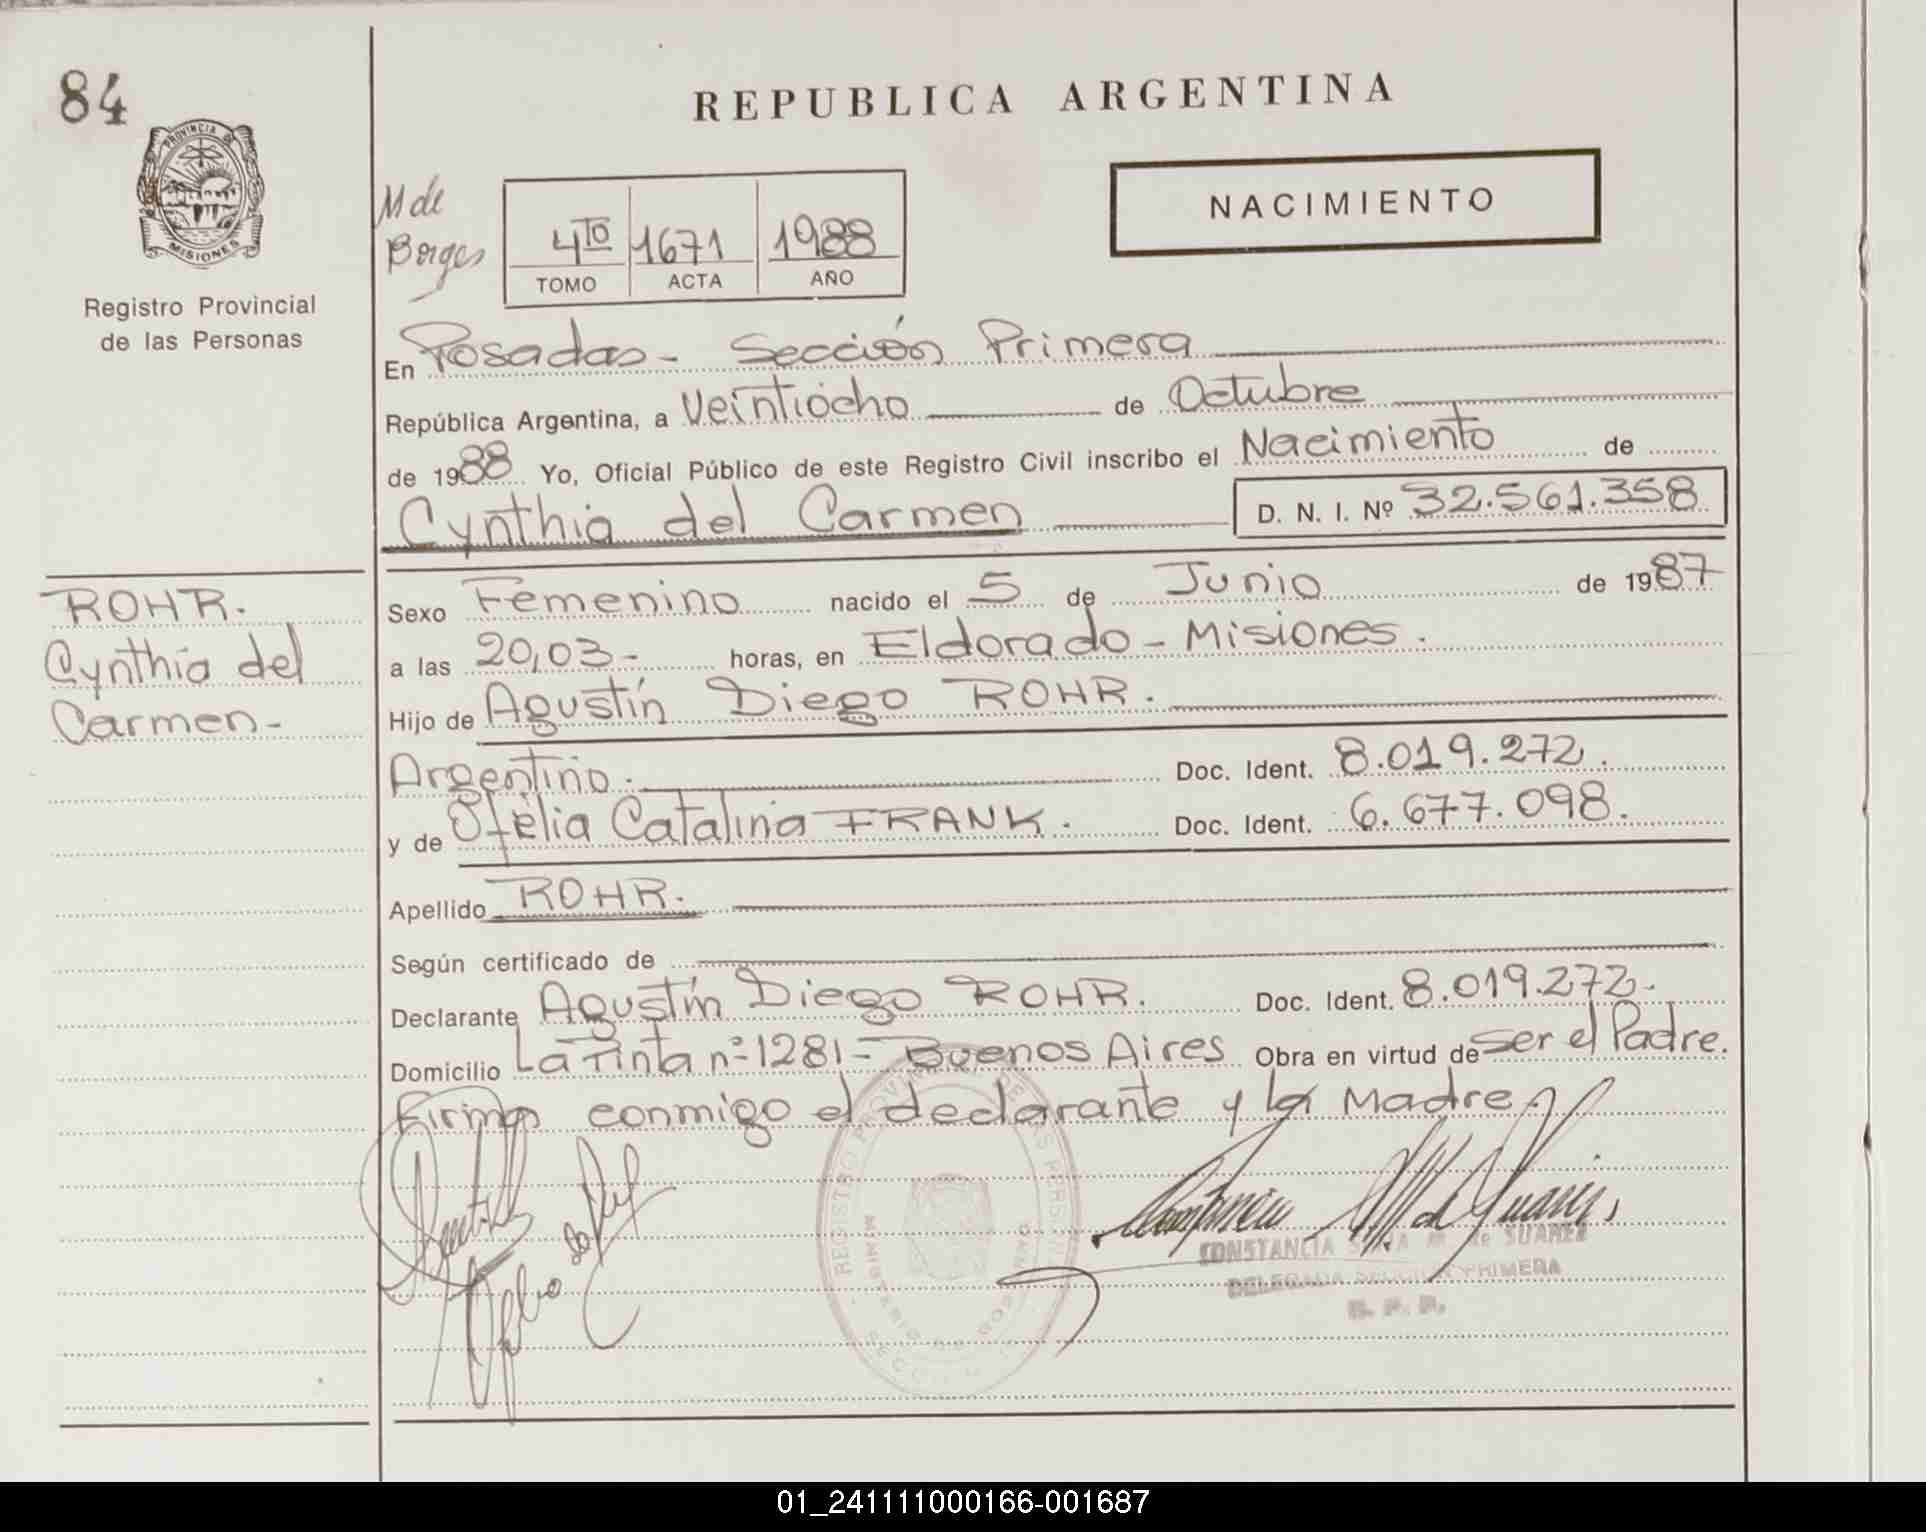 84
PROVINCIA DE
MISIONES
Registro Provincial
de las Personas
REPUBLICA ARGENTINA
NACIMIENTO
M de
Borges
4TO 1671 1988
TOMO ACTA AÑO
En Posadas - Sección Primera
República Argentina, a Veintiocho de Octubre
de 1988 Yo, Oficial Público de este Registro Civil inscribo el Nacimiento de
Cynthia del Carmen D. N. I. Nº 32.561.358
ROHR.
Cynthia del
Carmen-
Sexo Femenino nacido el 5 de Junio de 1987
a las 20,03- horas, en Eldorado - Misiones.
Hijo de Agustín Diego ROHR.
Argentino. Doc. Ident. 8.019.272.
y de Ofelia Catalina FRANK. Doc. Ident. 6.677.098.
Apellido ROHR.
Según certificado de
Declarante Agustín Diego ROHR. Doc. Ident. 8.019.272-
Domicilio La Tinta nº 1281 - Buenos Aires Obra en virtud de ser el Padre.
Firman conmigo el declarante y la Madre.
REGISTRO PROVINCIAL DE LAS PERSONAS
MINISTERIO DE GOBIERNO
CONSTANCIA M. de SUAREZ
DELEGADA SECCION PRIMERA
R. P. P.
01_241111000166-001687